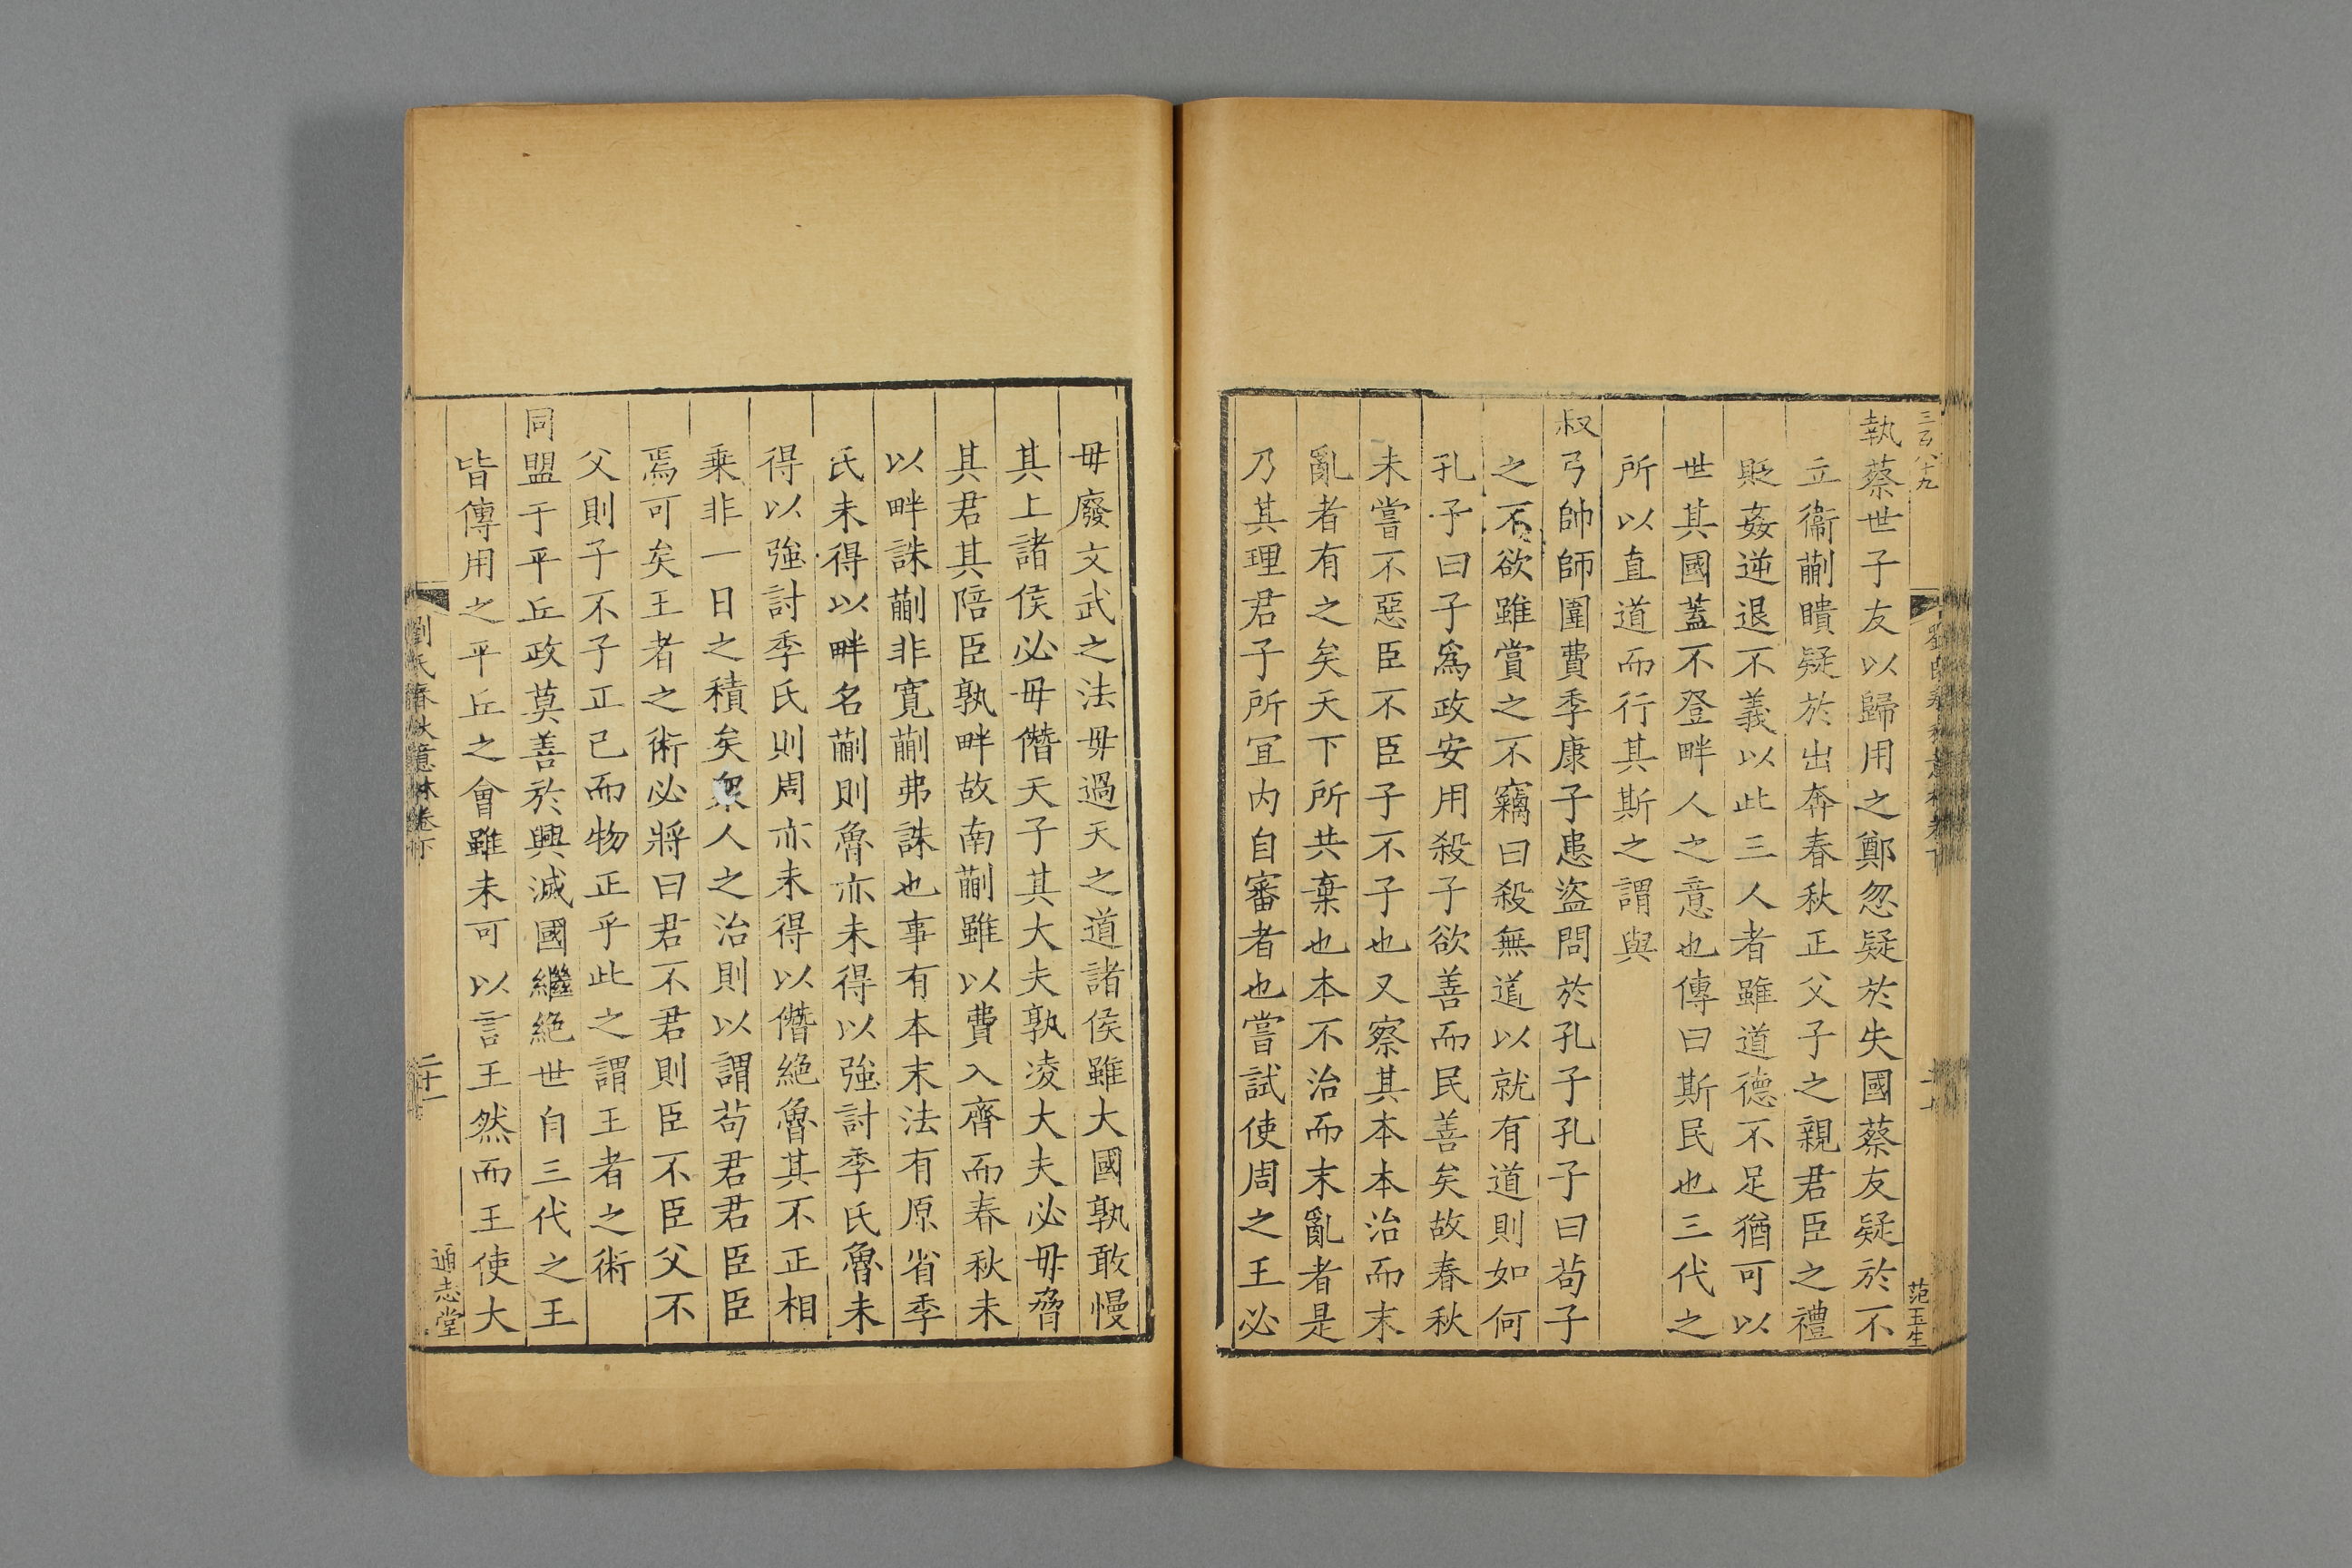 三百八十九
執蔡世子友以歸用之鄭忽疑於失國蔡友疑於不
立衞蒯聵疑於出奔春秋正父子之親君臣之禮
貶姦逆退不義以此三人者雖道德不足猶可以
世其國蓋不登畔人之意也傳曰斯民也三代之
所以直道而行其斯之謂與
叔弓帥師圍費季康子患盜問於孔子孔子曰苟子
之不欲雖賞之不竊曰殺無道以就有道則如何
孔子曰子爲政安用殺子欲善而民善矣故春秋
未嘗不惡臣不臣子不子也又察其本本治而末
亂者有之矣天下所共棄也本不治而末亂者是
乃其理君子所宜内自審者也嘗試使周之王必
范玉生
毋廢文武之法毋過天之道諸侯雖大國孰敢慢
其上諸侯必毋僭天子其大夫孰凌大夫必毋脅
其君其陪臣孰畔故南蒯雖以費入齊而春秋未
以畔誅蒯非寛蒯弗誅也事有本末法有原省季
氏未得以畔名蒯則魯亦未得以強討季氏魯未
得以強討季氏則周亦未得以僭絶魯其不正相
乗非一日之積矣衆人之治則以謂苟君君臣臣
焉可矣王者之術必將曰君不君則臣不臣父不
父則子不子正己而物正乎此之謂王者之術
同盟于平丘政莫善於興滅國繼絶世自三代之王
皆傳用之平丘之會雖未可以言王然而王使大
劉氏春秋意林卷下
二十一
通志堂